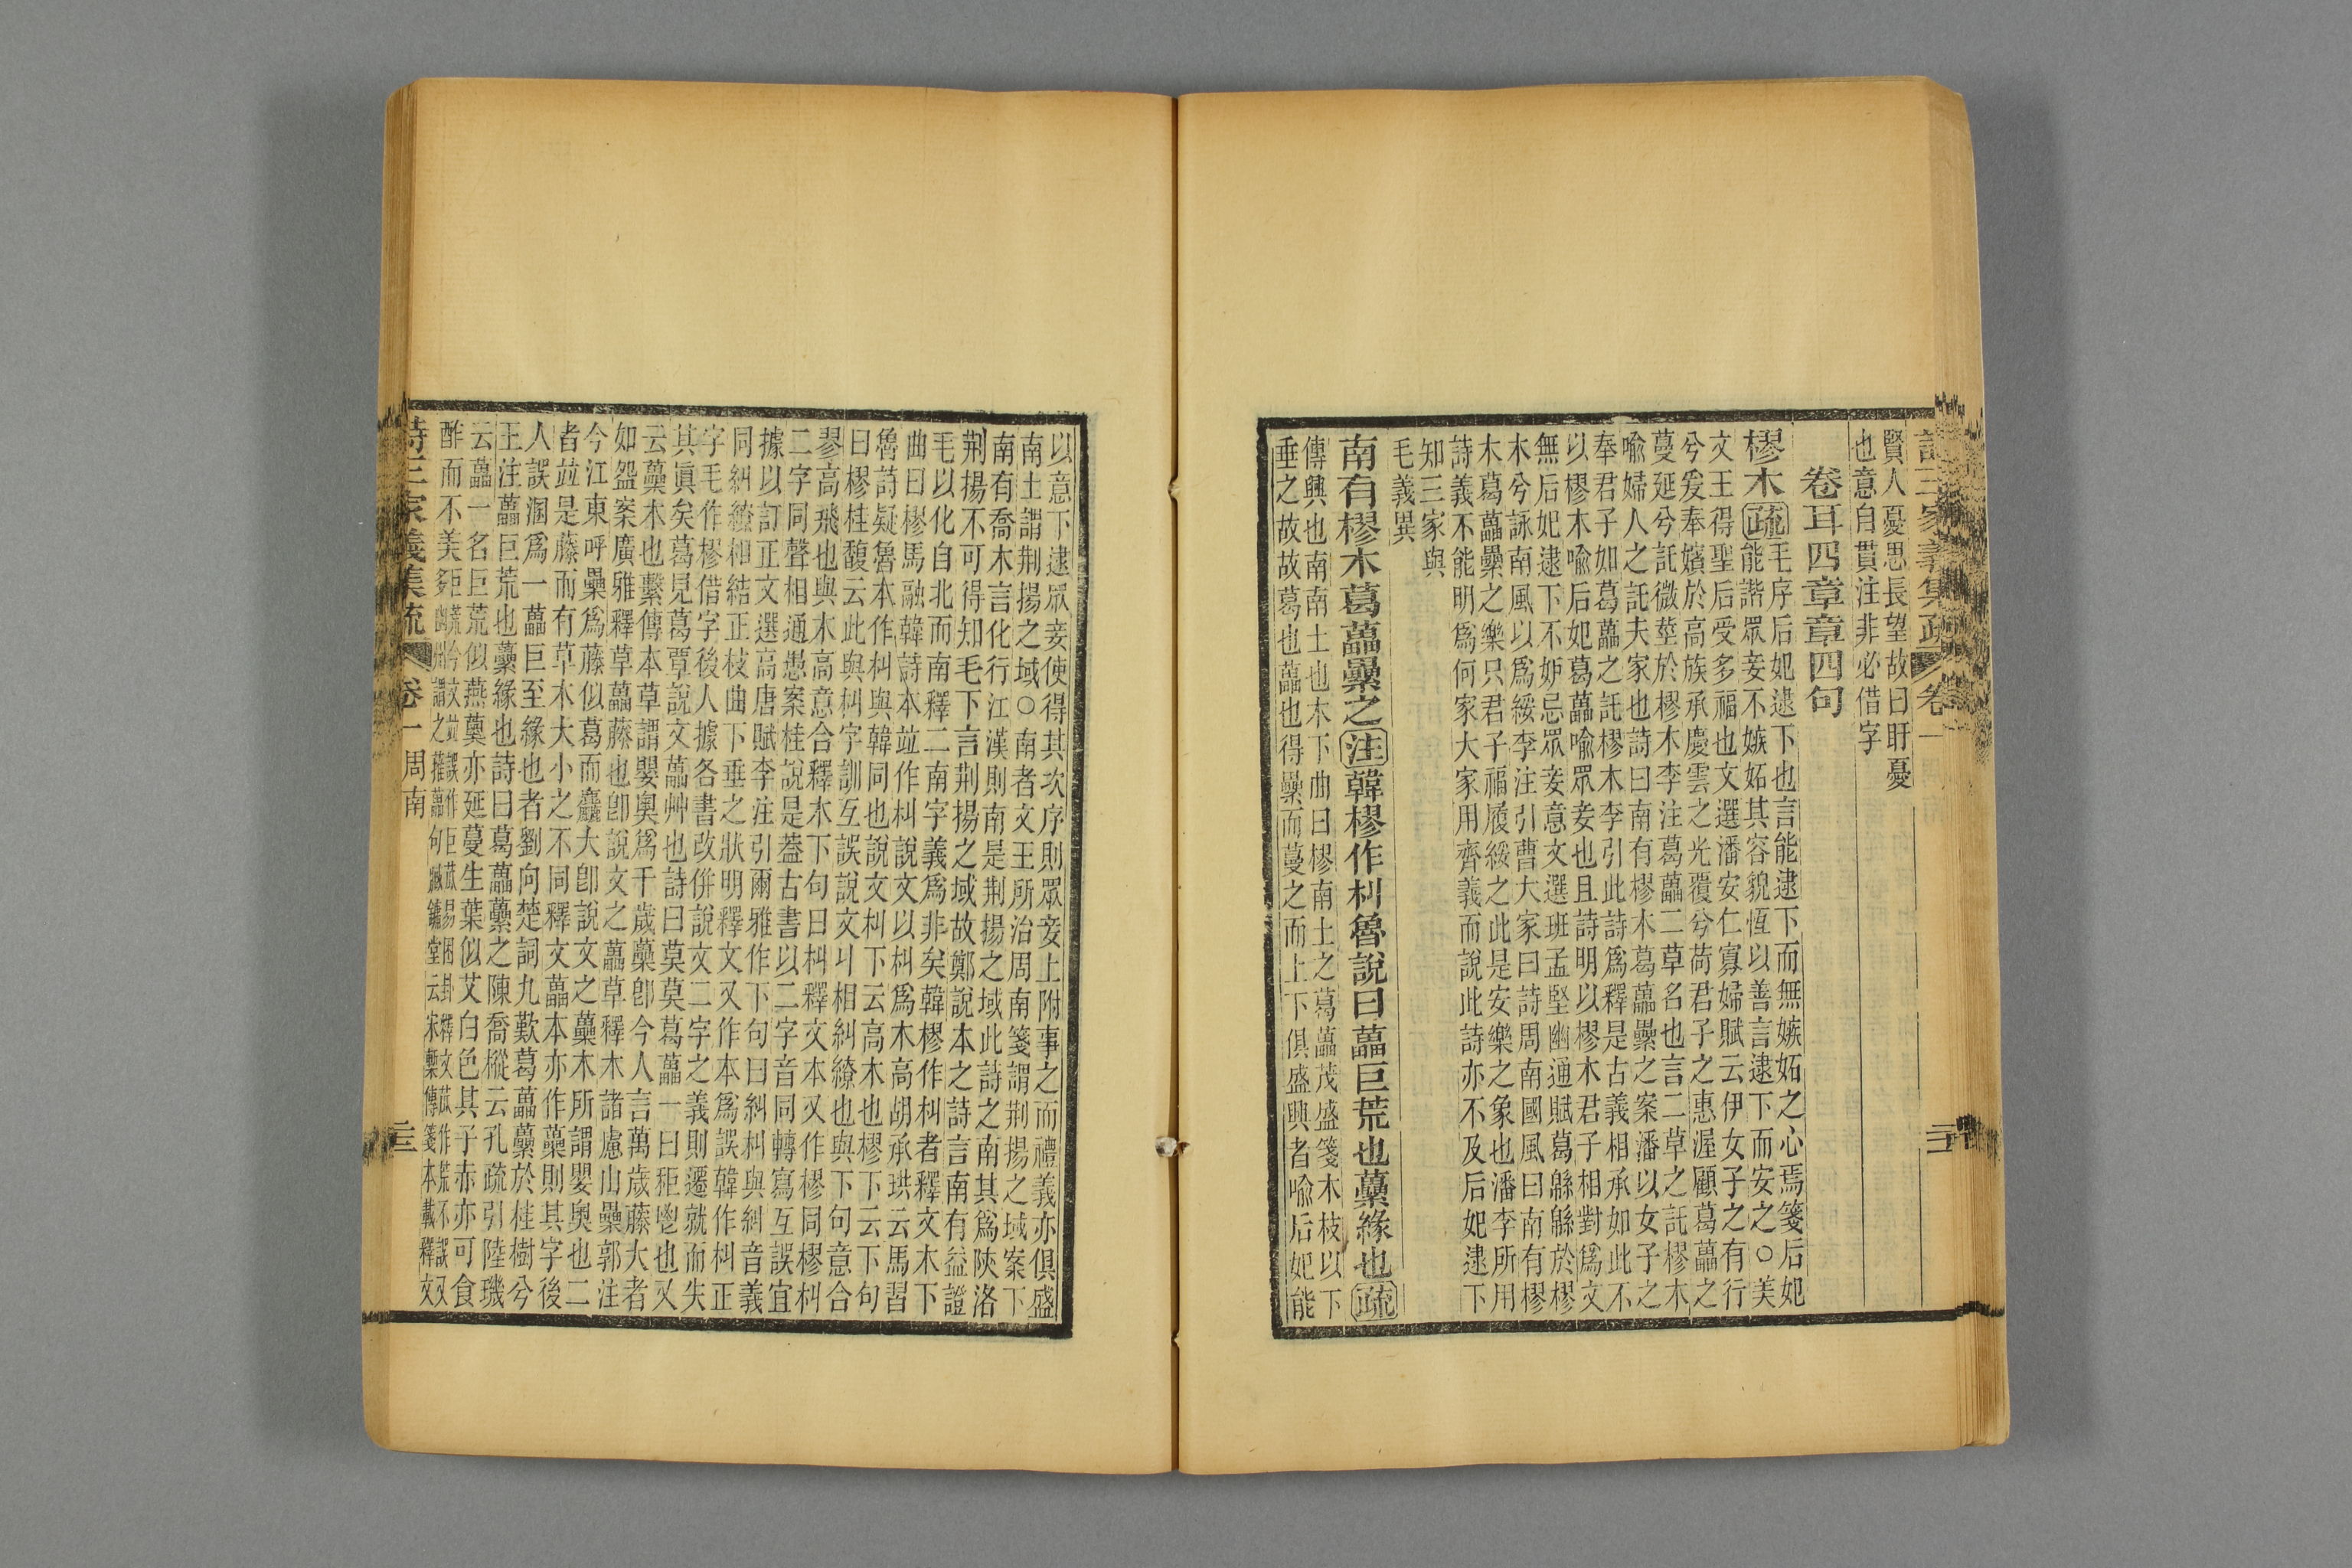 詩三家義集疏 卷一
賢人憂思長望故曰盱憂
也意自貫注非必借字
卷耳四章章四句
樛木疏毛序后妃逮下也言能逮下而無嫉妬之心焉箋后妃
能諧眾妾不嫉妬其容貌恆以善言逮下而安之○美
文王得聖后受多福也文選潘安仁寡婦賦云伊女子之有行
兮爰奉嬪於高族承慶雲之光覆兮荷君子之惠渥顧葛藟之
蔓延兮託微莖於樛木李注葛藟二草名也言二草之託樛木
喻婦人之託夫家也詩曰南有樛木葛藟纍之案潘以女子之
奉君子如葛藟之託樛木李引此詩為釋是古義相承如此不
以樛木喻后妃葛藟喻眾妾也且詩明以樛木君子相對爲文
無后妃逮下不妒忌眾妾意文選班孟堅幽通賦葛緜緜於樛
木兮詠南風以爲綏李注引曹大家曰詩周南國風曰南有樛
木葛藟纍之樂只君子福履綏之此是安樂之象也潘李所用
詩義不能明爲何家大家用齊義而說此詩亦不及后妃逮下
知三家與
毛義異
南有樛木葛藟纍之注韓樛作朻魯說曰藟巨荒也虆緣也疏
傳興也南南土也木下曲曰樛南土之葛藟茂盛箋木枝以下
垂之故故葛也藟也得纍而蔓之而上下俱盛興者喻后妃能
以意下逮眾妾使得其次序則眾妾上附事之而禮義亦俱盛
南土謂荆揚之域○南者文王所治周南箋謂荆揚之域案下
南有喬木言化行江漢則南是荆揚之域此詩之南其爲陝洛
荆揚不可得知毛下言荆揚之域故鄭說本之詩言南有益證
毛以化自北而南釋二南字義爲非矣韓樛作朻者釋文木下
曲曰樛馬融韓詩本竝作朻說文以朻爲木高胡承珙云馬習
魯詩疑魯本作朻與韓同也說文朻下云高木也樛下云下句
曰樛桂馥云此與朻字訓互誤說文丩相糾繚也與下句意合
翏高飛也與木高意合釋木下句曰朻釋文本又作樛同樛朻
二字同聲相通愚案桂說是葢古書以二字音同轉寫互誤宜
據以訂正文選高唐賦李注引爾雅作下句曰糾糾與糾音義
同糾繚相結正枝曲下垂之狀明釋文又作本爲誤韓作朻正
字毛作樛借字後人據各書改併說文二字之義則遷就而失
其眞矣葛見葛覃說文藟艸也詩曰莫莫葛藟一曰秬鬯也又
云虆木也繫傳本草謂嬰奧爲千歲虆卽今人言萬歲藤大者
如盌案廣雅釋草藟藤也卽說文之藟草釋木諸慮山纍郭注
今江東呼纍爲藤似葛而麤大卽說文之虆木所謂嬰奧也二
者竝是藤而有草木大小之不同釋文藟本亦作虆則其字後
人誤溷爲一藟巨至緣也者劉向楚詞九歎葛藟虆於桂樹兮
王注藟巨荒也虆緣也詩曰葛藟虆之陳喬樅云孔疏引陸璣
云藟一名巨荒似燕薁亦延蔓生葉似艾白色其子赤亦可食
酢而不美
詩三家義集疏 卷一 周南